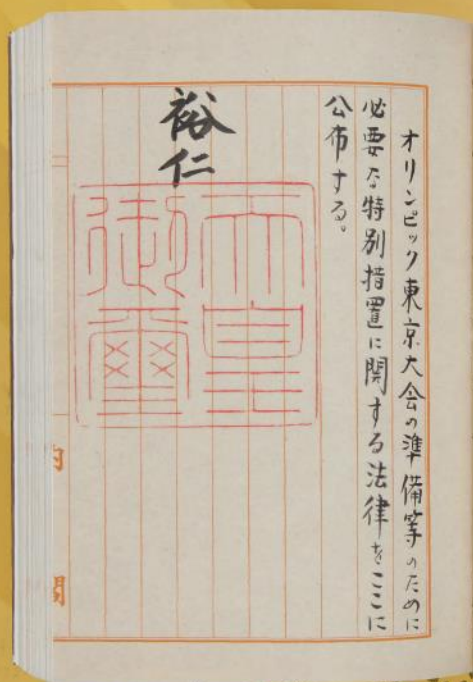 オリンピック東京大会の準備等のために
必要な特別措置に関する法律をここに
公布する。
裕仁
天皇
御璽
内閣